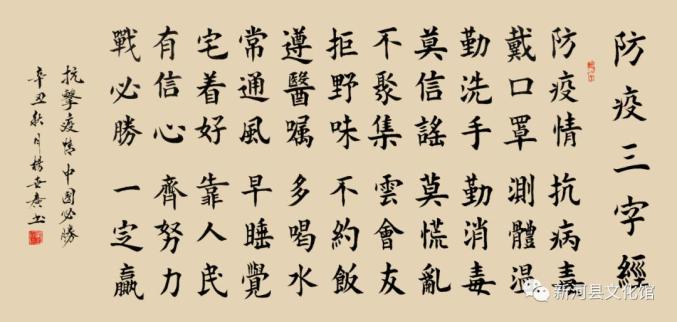 防疫三字經
防疫情 抗病毒
戴口罩 測體温
勤洗手 勤消毒
莫信謠 莫慌亂
不聚集 雲會友
拒野味 不約飯
遵醫嘱 多喝水
常通風 早睡覺
宅着好 靠人民
有信心 齊努力
戰必勝 一定贏
抗擊疫情中国必勝
辛丑秋月楊世彦书
新河县文化馆